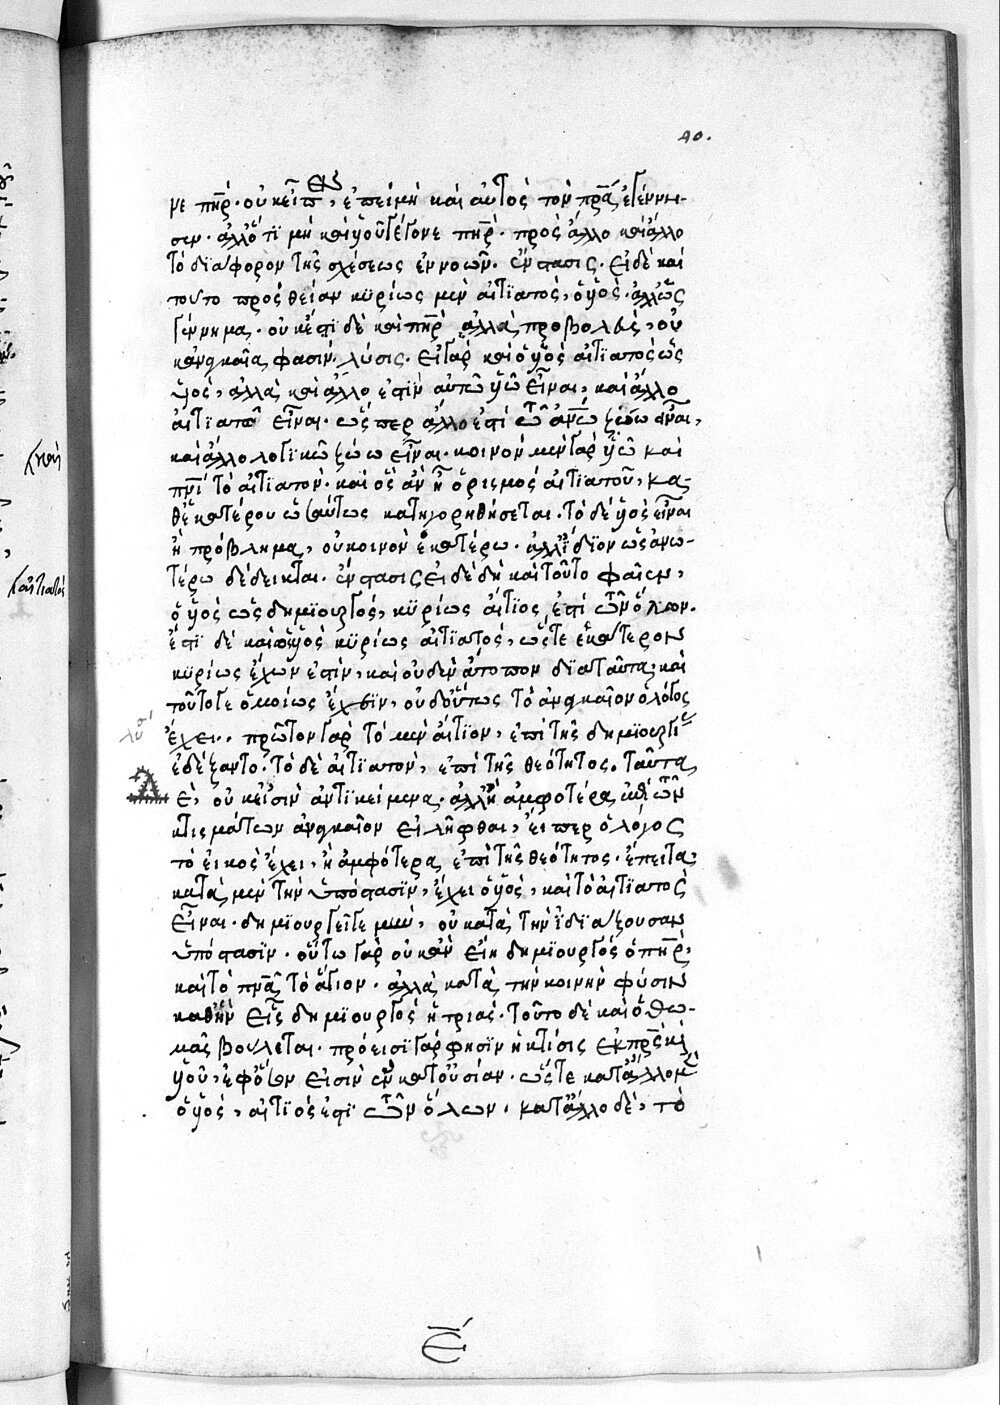 40.
νε πη̅ρ· οὐκ εἶπ, ἐπεὶ μὴ καὶ αὐτὸς τὸν πρ̅α ἐγέννη-
σεν· ἀλλ' ὅτι μὴ καὶ υἱοῦ γέγονε πη̅ρ· πρὸς ἄλλο καὶ ἄλλο
τὸ διάφορον τῆς σχέσεως ἐννοῶν· ἔνστασις· εἰ δὲ καὶ
τοῦτο προσθεῖεν κυρίως μὲν αἰτιατὸς, ὁ υἱὸς· ἀλλ' ὡς
γέννημα· οὐκ ἔστι δὲ καὶ πη̅ρ ἀλλὰ προβολεὺς, οὐ
κἀνταῦθα, φασίν· λύσις· εἰ γὰρ καὶ ὁ υἱὸς αἰτιατὸς ὡς
υἱὸς, ἀλλὰ καὶ ἄλλο ἐστὶν αὐτῶ υἱῶ εἶναι, καὶ ἄλλο
αἰτιατῶ εἶναι· ὥσπερ ἄλλο ἐστὶ τῶ ἀν̅ω ζώω εἶναι,
καὶ ἄλλο λογικῶ ζώω εἶναι· κοινὸν μὲν γὰρ υἱῶ καὶ
πν̅ι τὸ αἰτιατὸν· καὶ ὃς ἂν ἦ ὁρισμὸς αἰτιατοῦ, κα-
θ' ἑκατέρου ὡσαύτως κατηγορηθήσεται· τὸ δὲ υἱὸς εἶναι
ἢ πρόβλημα, οὐ κοινὸν ἑκατέρω· ἀλλ' ἴδιον ὡς ἀνω-
τέρω δέδεικται· ἔνστασις εἰ δὲ δὴ καὶ τοῦτο φαῖεν,
ὁ υἱὸς ὡς δημιουργὸς, κυρίως αἴτιος ἐστὶ τῶν ὅλων·
ἔστι δὲ καὶ ὁ υἱὸς κυρίως αἰτιατὸς, ὥστε ἑκάτερον
κυρίως ἔχων ἐστὶν, καὶ οὐδὲν ἄτοπον διὰ ταῦτα· καὶ
τοῦτό γε ὁμοίως ἔχειν, οὐδ' οὕτως τὸ ἀναγκαῖον ὁ λόγος
ἔχει· πρῶτον γὰρ τὸ μὲν αἴτιον, ἐπὶ τῆς δημιουργί
ἐδέξαντο· τὸ δὲ αἰτιατὸν, ἐπὶ τῆς θεότητος· ταῦτα
δὲ, οὐκ εἰσὶν ἀντικείμενα· ἀλλ' ἢ ἀμφότερα ἐπὶ τῶν
κτισμάτων ἀναγκαῖον εἰλῆφθαι, εἴπερ ὁ λόγος
τὸ εἰκὸς ἔχει, ἢ ἀμφότερα ἐπὶ τῆς θεότητος· ἔπειτα
κατὰ μὲν τὴν ὑπόστασιν, ἔχει ὁ υἱὸς, καὶ τὸ αἰτιατὸς
εἶναι· δημιουργεῖ γε μὴν, οὐ κατὰ τὴν ἰδιάζουσαν
ὑπόστασιν· οὕτω γὰρ οὐκ ἂν εἴη δημιουργὸς ὁ πη̅ρ,
καὶ τὸ πν̅α τὸ ἅγιον· ἀλλὰ κατὰ τὴν κοινὴν φύσιν
καθ' ἣν εἷς δημιουργὸς ἡ τριάς· τοῦτο δὲ καὶ ὁ Θω-
μᾶς βούλεται· πρόεισι γάρ φησιν ἡ κτίσις ἐκ πρ̅ς καὶ
υἱοῦ, ἐφ' ὅσον εἰσὶν ἓν κατ' οὐσίαν· ὥστε κατ' ἄλλο μὲν
ὁ υἱὸς, αἴτιός ἐστι τῶν ὅλων· κατ' ἄλλο δὲ, τὸ
λύσ
ε̅